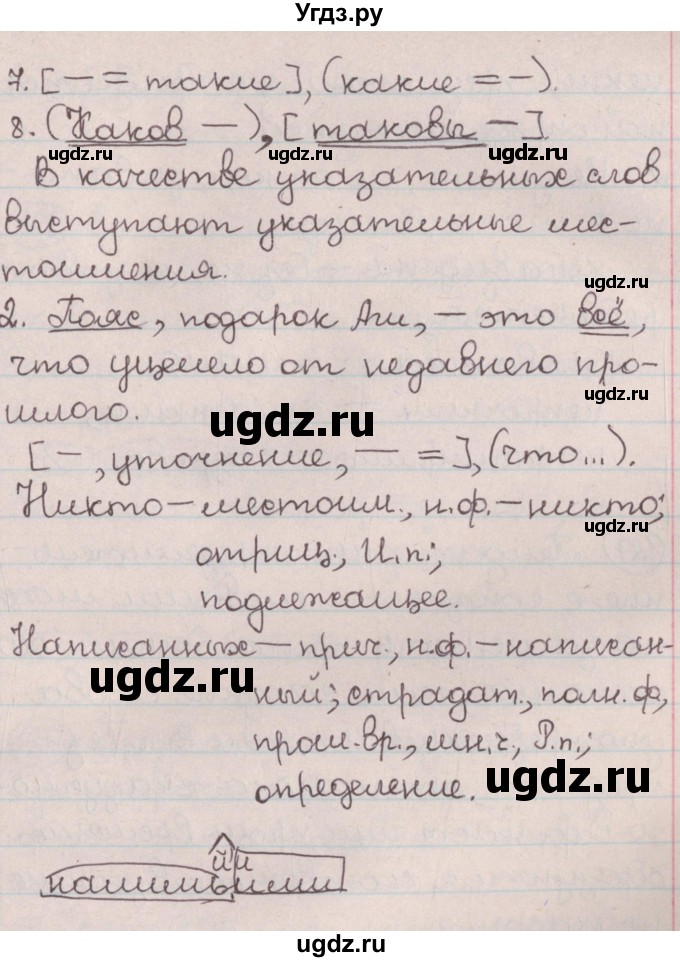 Угдз.ру
7. [— = такие], (какие = —).
8. (Каков —), [таковы —].
ugdz.ru ugdz.ru ugdz.ru
В качестве указательных слов
выступают указательные мес-
тоимения.
ugdz.ru
2. Пояс, подарок Аги, — это всё,
что уцелело от недавнего про-
ugdz.ru
шлого.
ugdz.ru
[—, уточнение, — =], (что...).
Никто — местоим., н.ф. — никто;
ugdz.ru
отриц., И.п.;
подлежащее.
Написанных — прич., н.ф. — написан-
ugdz.ru
ный; страдат., полн.ф,
прош.вр., мн.ч., Р.п.;
ugdz.ru
определение.
йи
нашиньими
ugdz.ru